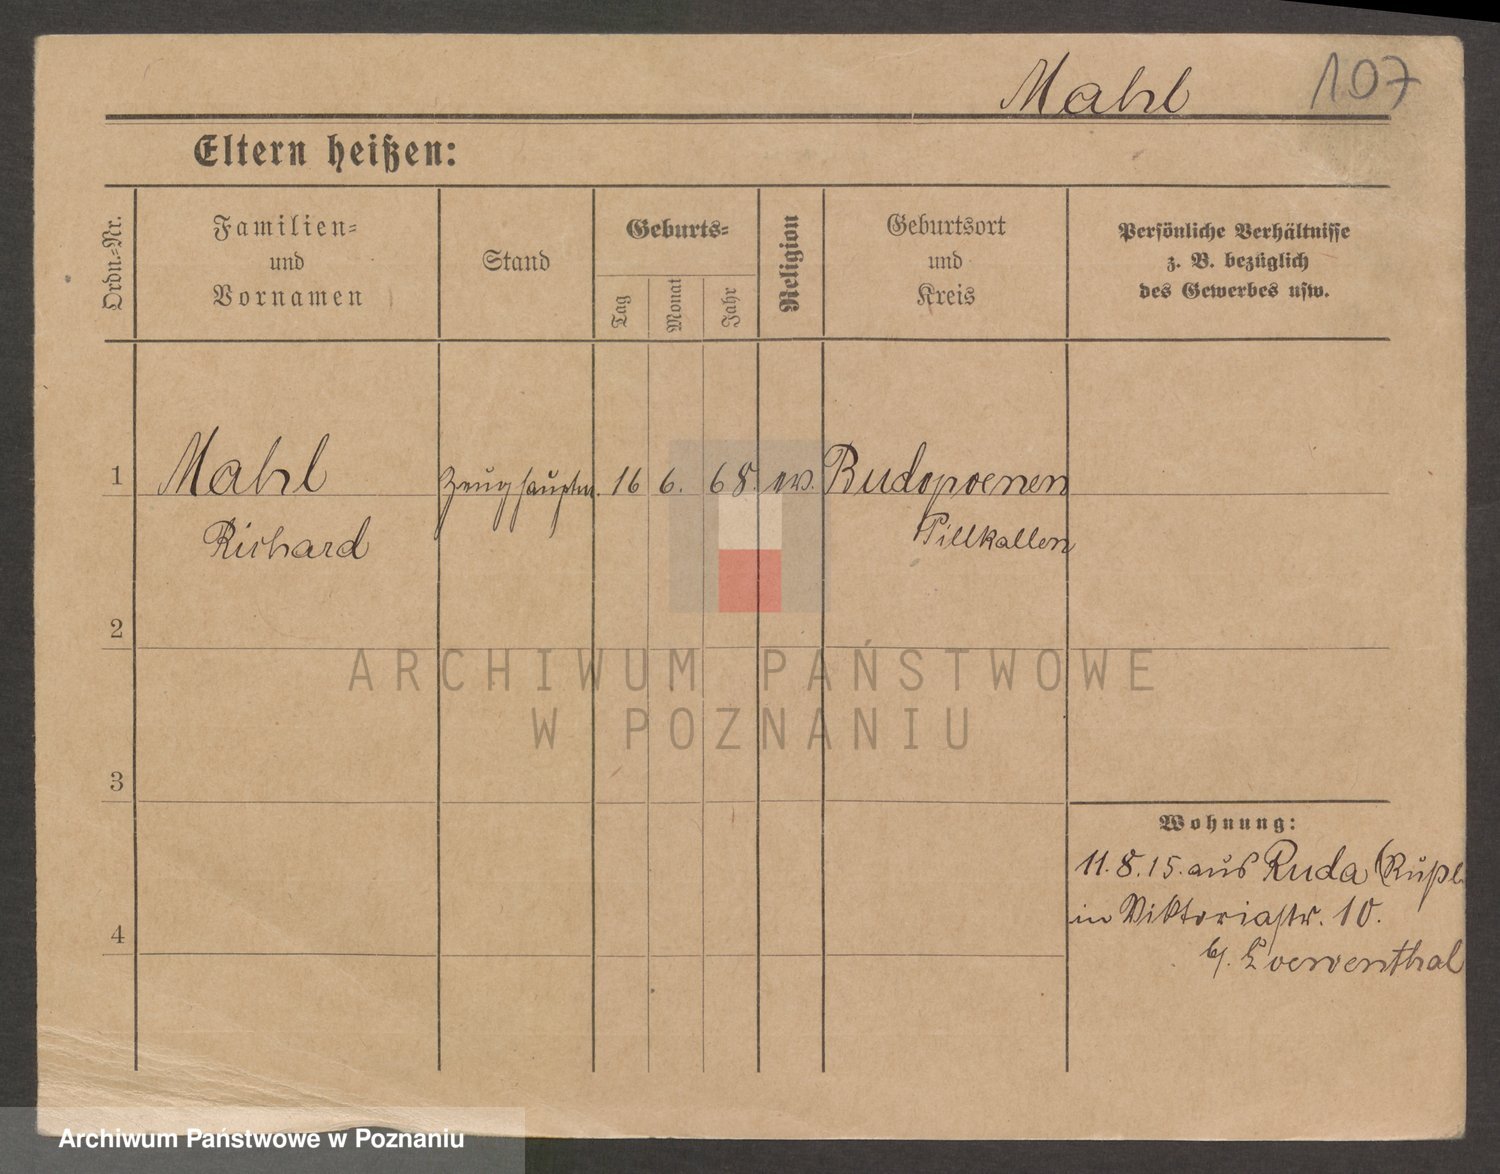 Mahl 107
Eltern heißen:
Ordn.-Nr.
Familien-
und
Vornamen
Stand
Geburts-
Tag
Monat
Jahr
Religion
Geburtsort
und
Kreis
Persönliche Verhältnisse
z. B. bezüglich
des Gewerbes usw.
1 Mahl Zeughauptm. 16 6. 68. ev. Budopoenen
Richard Pillkallen
2
ARCHIWUM PAŃSTWOWE
W POZNANIU
3
Wohnung:
11.8.15. aus Ruda (Rußl.
in Viktoriastr. 10.
4
b/. Loewenthal
Archiwum Państwowe w Poznaniu